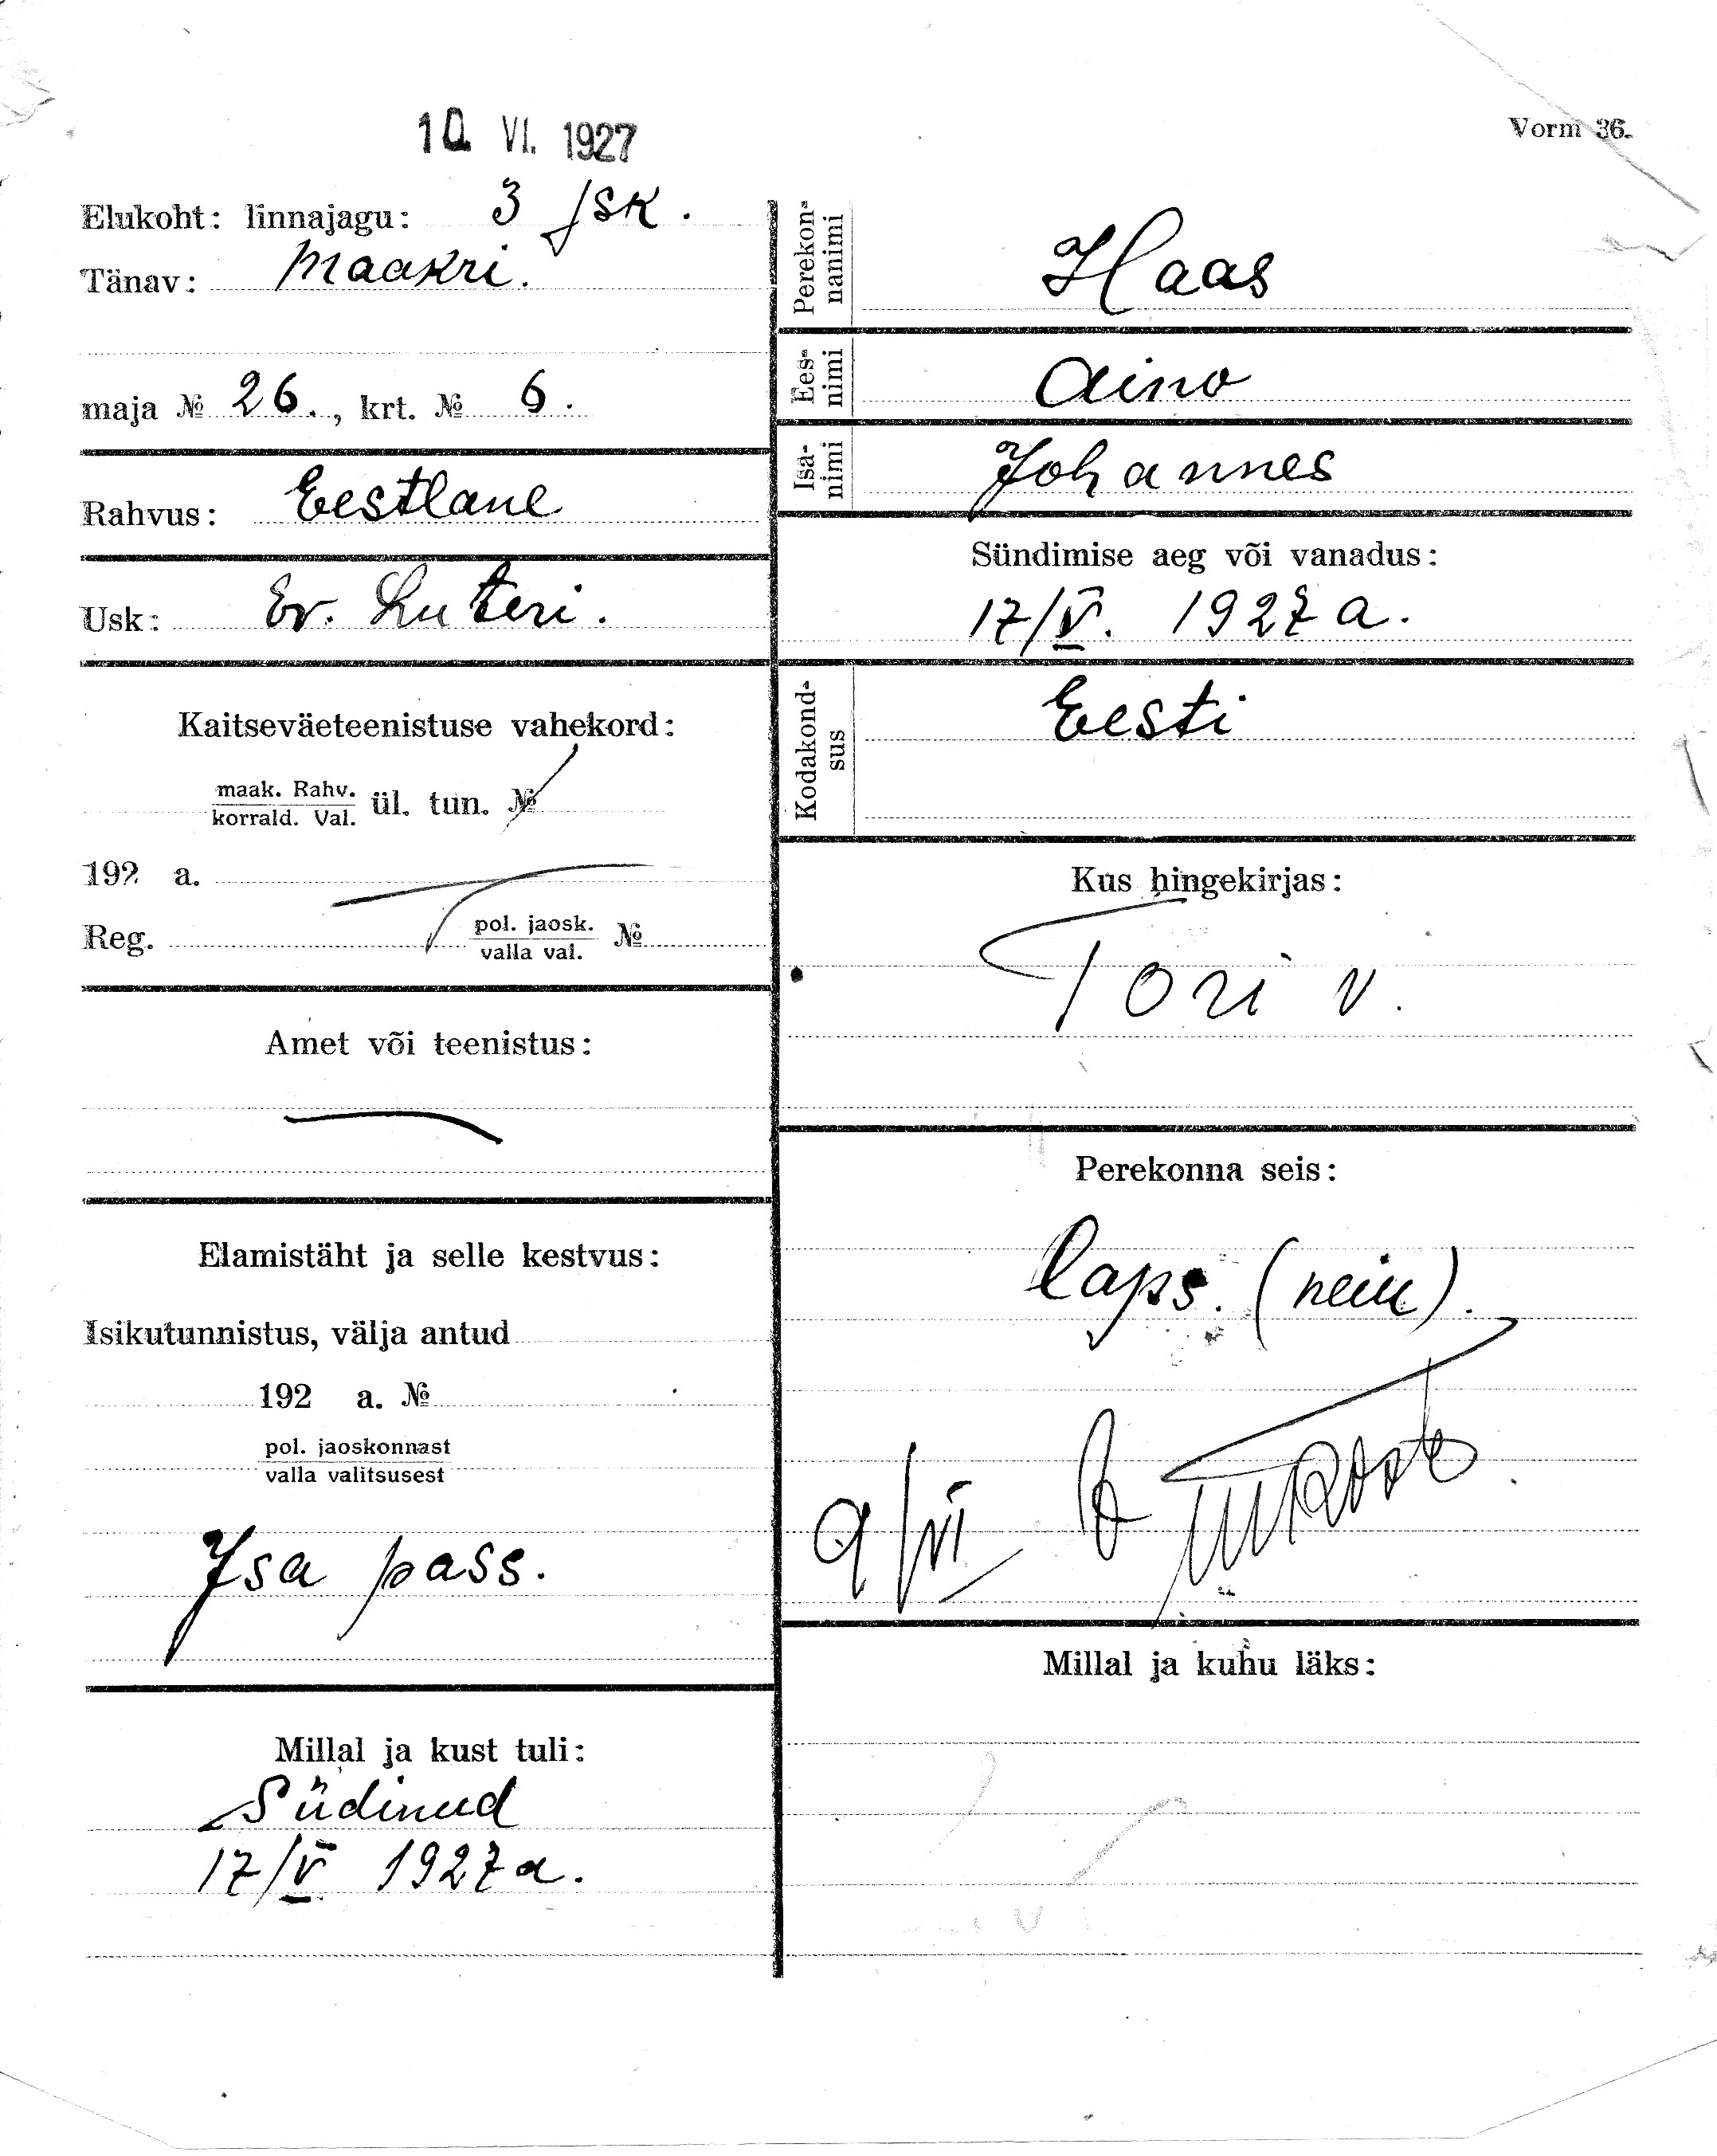 10. VI. 1927
Vorm 36.
Elukoht: linnajagu: 3 jsk.
Tänav: Maakri.
maja № 26., krt. № 6.
Rahvus: Eestlane
Usk: Ev. Luteri.
Kaitseväeteenistuse vahekord:
maak. Rahv.
korrald. Val. ül. tun. №
192 a.
Reg. pol. jaosk.
valla val. №
Amet või teenistus:
Elamistäht ja selle kestvus:
Isikutunnistus, välja antud
192 a. №
pol. jaoskonnast
valla valitsusest
Isa pass.
Millal ja kust tuli:
Südinud
17/V 1927 a.
Perekon-
nanimi Haas
Ees-
nimi Aino
Isa-
nimi Johannes
Sündimise aeg või vanadus:
17/V. 1927 a.
Kodakond-
sus Eesti
Kus hingekirjas:
Tori v.
Perekonna seis:
laps. (neiu).
9/VI
Millal ja kuhu läks: